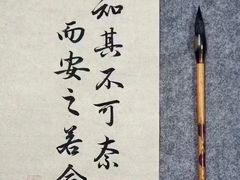 知其不可奈
而安之若命